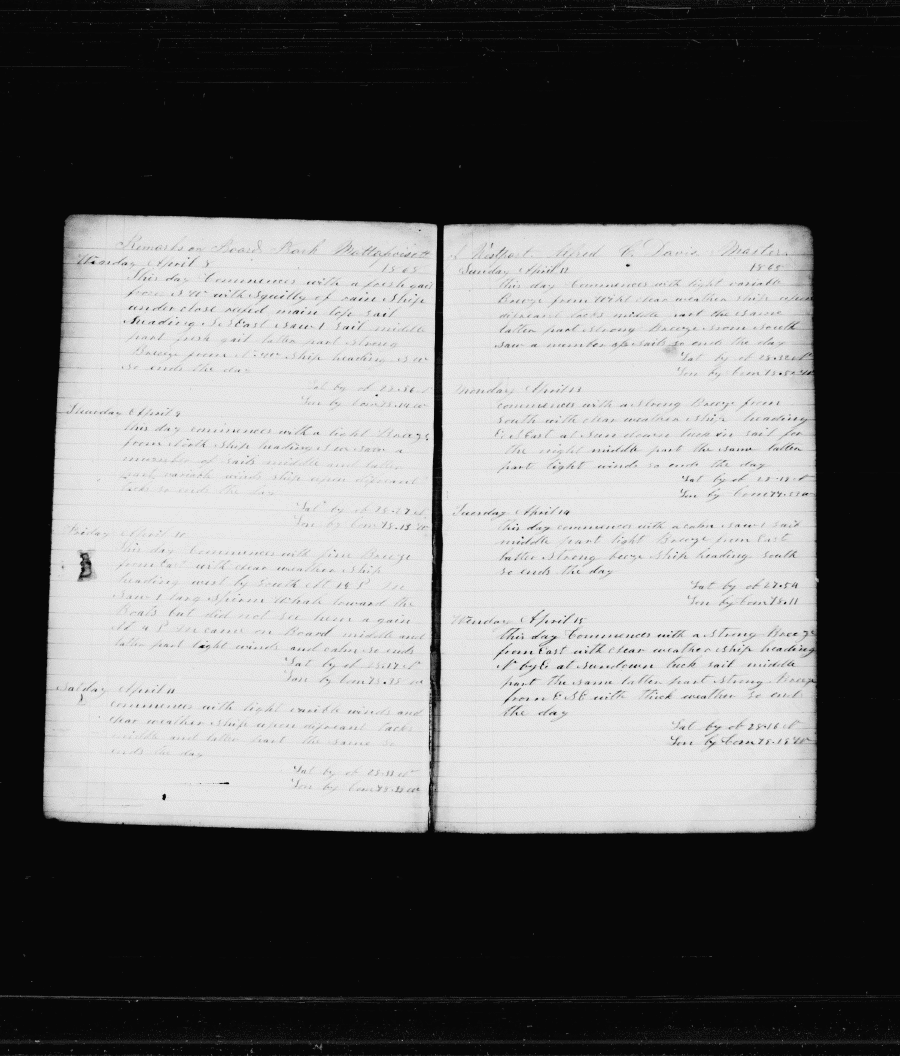 Remarks on Board Bark Mattapoisett
Wensday April 8 1868
this day Commences with a fresh gail
from S W with Squilly of rain Ship
under close reefd main top sail
heading S S East Saw 1 Sail middle
part fresh gail latter part Strong
Breeze from N W Ship heading S W
So ends the day
Lat by ob 28.36 N
Lon by Com
thursday April 9
this day commences with a light Breeze
from North Ship heading S W Saw a
number of Sails middle and latter
part variable winds Ship upon diferant
tacks so ends the day
Lat by ob 28.27 N
Lon by Com 75.13 W
Friday April 10
this day Commences with fine Breeze
from East with clear weather Ship
heading west by South At 1½ P M
Saw 1 larg Sperm Whale loward the
Boats but did not See him a gain
At 4 P M came on Board middle and
latter part light winds and calm So ends
Lat by ob N
Lon by Com W
Satday April 11
commences with light varible winds and
clear weather Ship upon diferant tacks
middle and latter part the same So
ends the day
Lat by ob 28.33 N
Lon by Com W
of Westport Alfred C. Davis Master
Sunday April 12 1868
this day Commences with light variable
Breeze from West clear weather Ship upon
diferant tacks middle part the same
latter part Strong Breeze from South
Saw a number of Sails so ends the day
Lat by ob 28.32 N
Lon by Com W
Monday April 13
commences with a Strong Breeze from
South with clear weather Ship heading
E S East at Sun down tuck in sail for
the night middle part the same latter
part light winds so ends the day
Lat by ob 28.13 N
Lon by Com W
Tuesday April 14
this day commences with a calm Saw 1 Sail
middle part light Breeze from East
latter Strong beeze Ship heading South
So ends the day
Lat by ob 27.54
Lon by Com 78.11
Wensday April 15
this day Commences with a Strong Breeze
from East with clear weather Ship heading
N by E at Sundown tuck sail middle
part the same latter part Strong Breeze
from E S E with thick weather So ends
the day
Lat by ob 28.16 N
Lon by Com 78.18 W